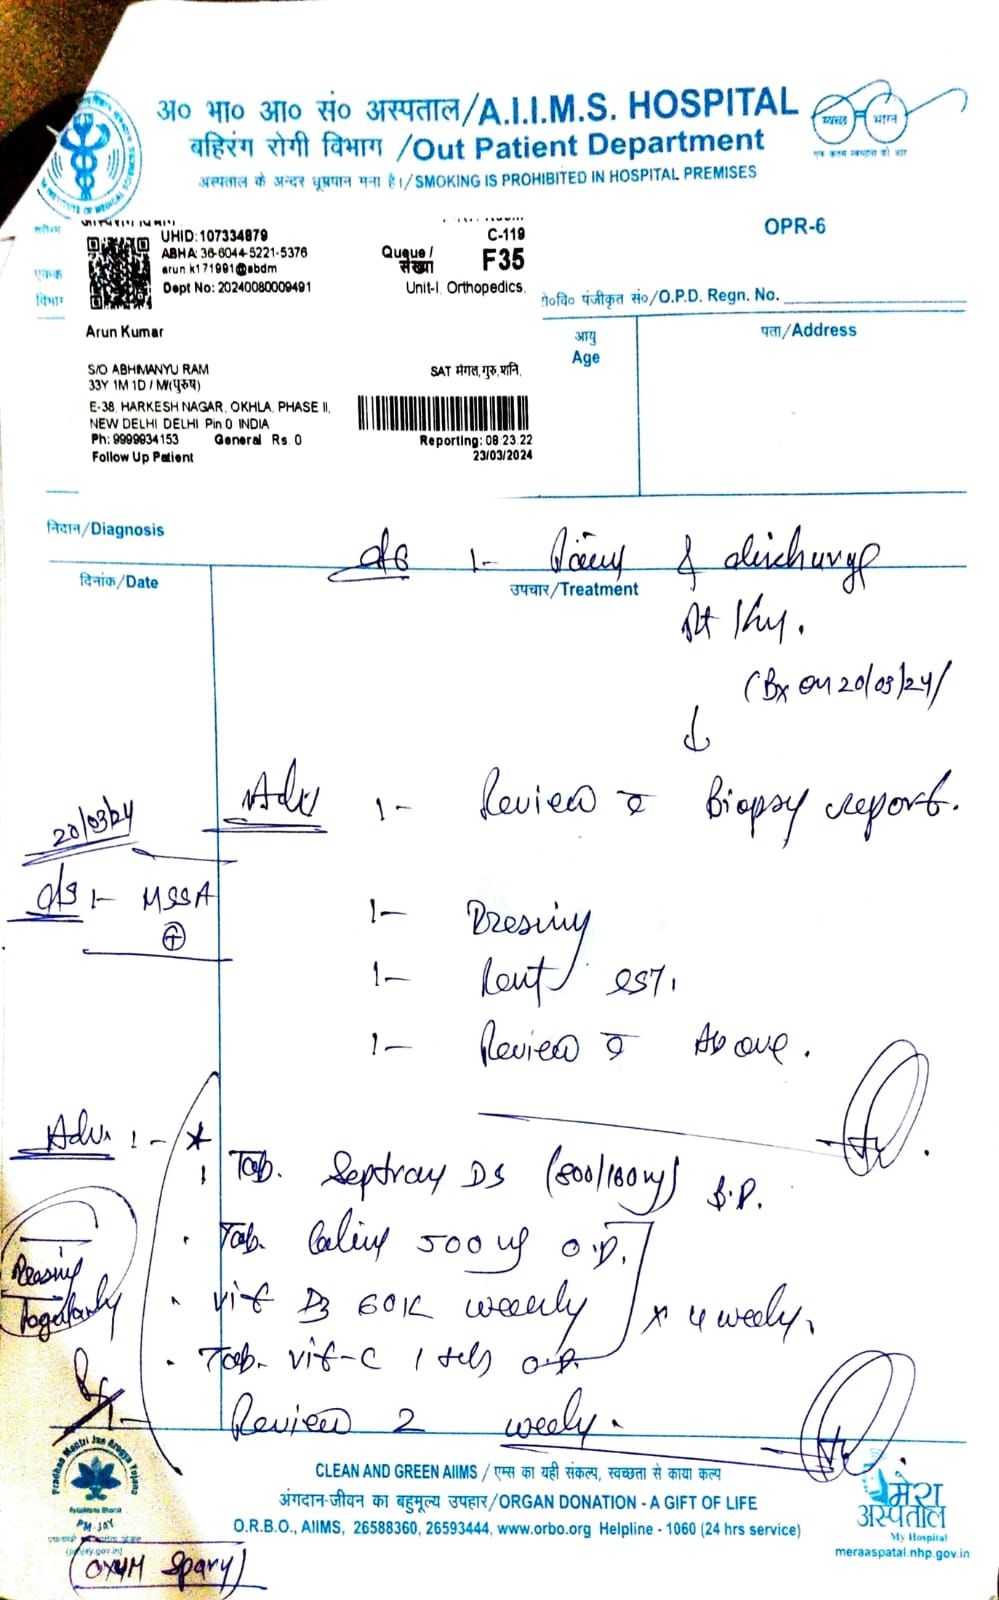 अ० भा० आ० सं० अस्पताल/A.I.I.M.S. HOSPITAL
बहिरंग रोगी विभाग /Out Patient Department
अस्पताल के अन्दर धूम्रपान मना है।/SMOKING IS PROHIBITED IN HOSPITAL PREMISES
स्वच्छ भारत
एक कदम स्वच्छता की ओर
OPR-6
एकक
विभाग
UHID:107334879
ABHA: 36-6044-5221-5376
arun.k171991@abdm
Dept No: 20240080009491
C-119
Queue /
संख्या
F35
Unit-I, Orthopedics,
Arun Kumar
S/O ABHIMANYU RAM
33Y 1M 1D / M(पुरुष)
E-38, HARKESH NAGAR, OKHLA, PHASE II,
NEW DELHI DELHI Pin 0 INDIA
Ph: 9999934153 General Rs. 0
Follow Up Patient
SAT मंगल,गुरु,शनि,
Reporting: 08:23:22
23/03/2024
पंजीकृत सं०/O.P.D. Regn. No.
आयु
Age
पता/Address
निदान/Diagnosis
दिनांक/Date
उपचार/Treatment
1- & discharge
Rt
(Bx on 20/03/24)
Adv 1- Review c̄ Biopsy report.
20/03/24
1- MSSA
⊕
1- Dressing
1-
1- Review c̄ Above.
Adv. :-
Tab. Septray DS (800/160mg) B.D.
Tab. 500 mg O.D.
Vit D3 60K weekly
x 4 weekly.
Tab. Vit-C 1 O.D.
Review 2 weekly.
Pradhan Mantri Jan Arogya Yojana
PM-JAY
CLEAN AND GREEN AIIMS / एम्स का यही संकल्प, स्वच्छता से काया कल्प
अंगदान-जीवन का बहुमूल्य उपहार/ORGAN DONATION - A GIFT OF LIFE
O.R.B.O., AIIMS, 26588360, 26593444, www.orbo.org Helpline - 1060 (24 hrs service)
मेरा
अस्पताल
My Hospital
meraaspatal.nhp.gov.in
(OXYM Spary)